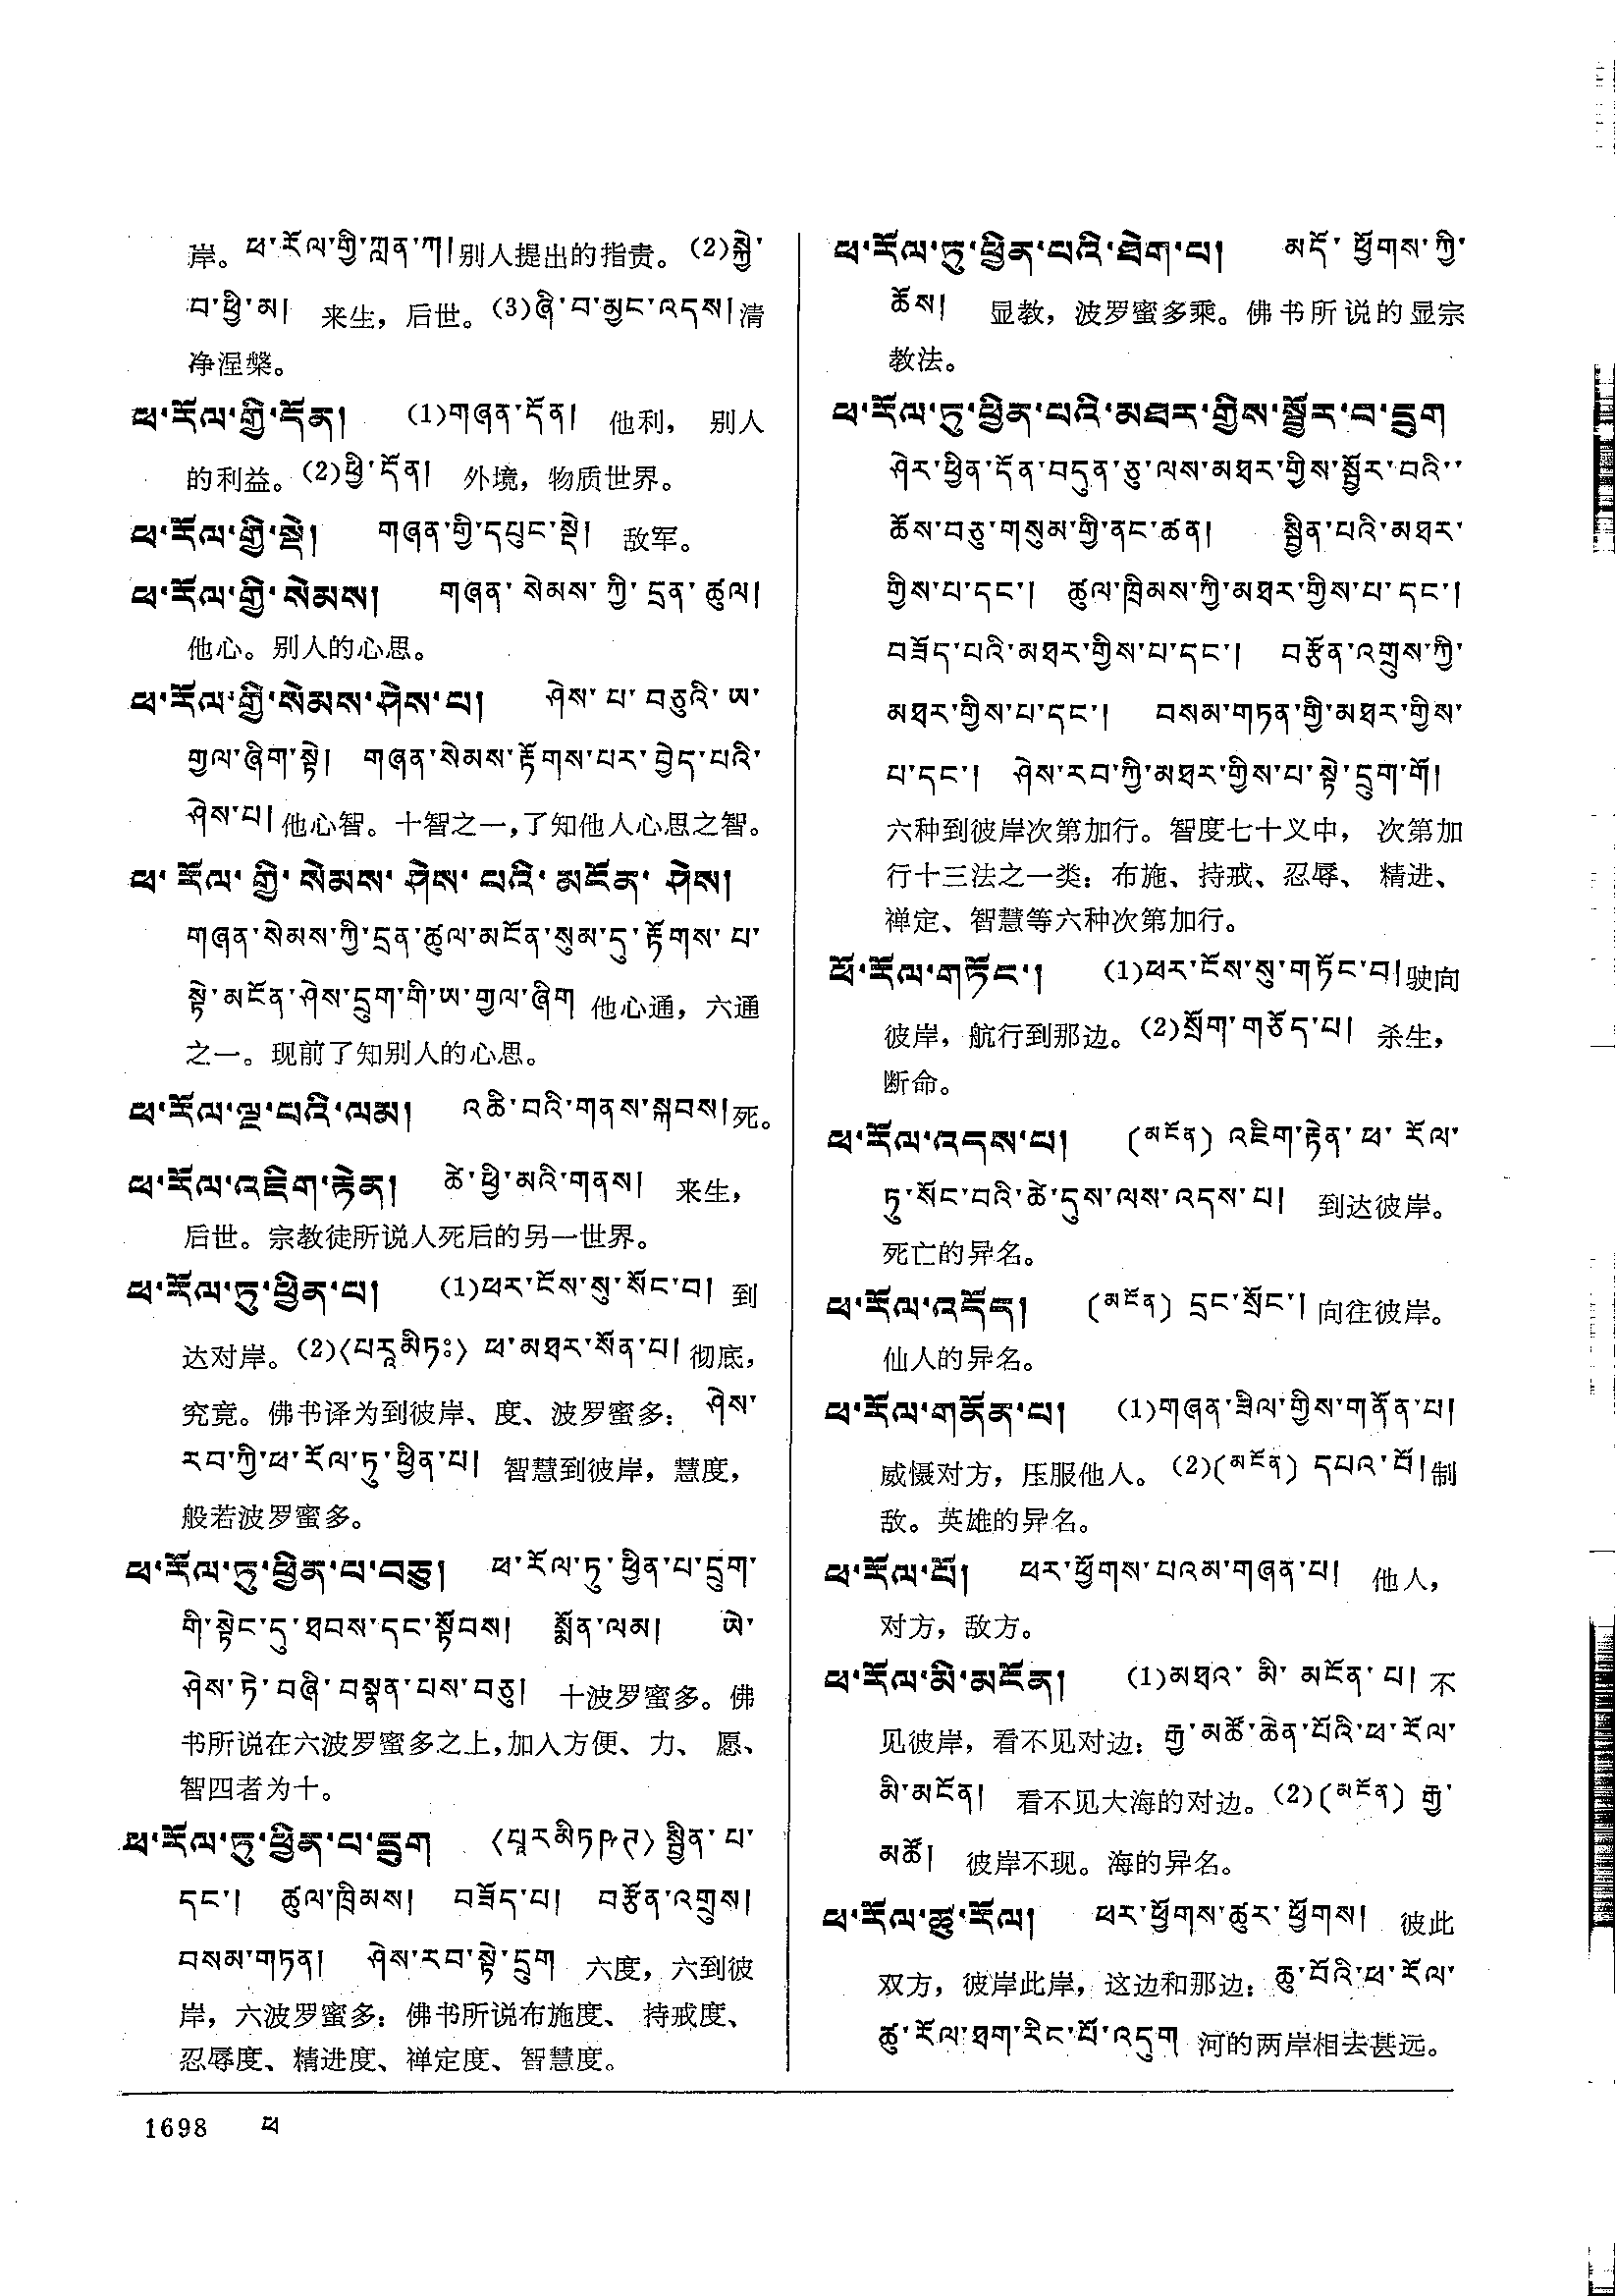 岸。ཕ་རོལ་གྱི་ཀླན་ཀ།别人提出的指责。(2)སྐྱེ་
བ་ཕྱི་མ། 来生，后世。(3)ཞི་བ་མྱང་འདས།清
净涅槃。
ཕ་རོལ་གྱི་དོན། (1)གཞན་དོན། 他利， 别人
的利益。(2)ཕྱི་དོན། 外境，物质世界。
ཕ་རོལ་གྱི་སྡེ། གཞན་གྱི་དཔུང་སྡེ། 敌军。
ཕ་རོལ་གྱི་སེམས། གཞན་སེམས་ཀྱི་དྲན་ཚུལ།
他心。别人的心思。
ཕ་རོལ་གྱི་སེམས་ཤེས་པ། ཤེས་པ་བཅུའི་ཨ་
གྱལ་ཞིག་སྟེ། གཞན་སེམས་རྟོགས་པར་བྱེད་པའི་
ཤེས་པ།他心智。十智之一，了知他人心思之智。
ཕ་རོལ་གྱི་སེམས་ཤེས་པའི་མངོན་ཤེས།
གཞན་སེམས་ཀྱི་དྲན་ཚུལ་མངོན་སུམ་དུ་རྟོགས་པ་
སྟེ་མངོན་ཤེས་དྲུག་གི་ཨ་གྱལ་ཞིག 他心通，六通
之一。现前了知别人的心思。
ཕ་རོལ་ལྔ་པའི་ལམ། འཆི་བའི་གནས་སྐབས།死。
ཕ་རོལ་འཇིག་རྟེན། ཚེ་ཕྱི་མའི་གནས། 来生，
后世。宗教徒所说人死后的另一世界。
ཕ་རོལ་ཏུ་ཕྱིན་པ། (1)ཕར་ངོས་སུ་སོང་བ། 到
达对岸。(2)〈པཱརམིཏཿ〉 ཕ་མཐར་སོན་པ།彻底，
究竟。佛书译为到彼岸、度、波罗蜜多：ཤེས་
རབ་ཀྱི་ཕ་རོལ་ཏུ་ཕྱིན་པ། 智慧到彼岸，慧度，
般若波罗蜜多。
ཕ་རོལ་ཏུ་ཕྱིན་པ་བཅུ། ཕ་རོལ་ཏུ་ཕྱིན་པ་དྲུག་
གི་སྟེང་དུ་ཐབས་དང་སྟོབས། སྨོན་ལམ། ཡེ་
ཤེས་ཏེ་བཞི་བསྣན་པས་བཅུ། 十波罗蜜多。佛
书所说在六波罗蜜多之上，加入方便、力、愿、
智四者为十。
ཕ་རོལ་ཏུ་ཕྱིན་པ་དྲུག སྦྱིན་པ་
དང་། ཚུལ་ཁྲིམས། བཟོད་པ། བརྩོན་འགྲུས།
བསམ་གཏན། ཤེས་རབ་སྟེ་དྲུག 六度，六到彼
岸，六波罗蜜多：佛书所说布施度、持戒度、
忍辱度、精进度、禅定度、智慧度。
ཕ་རོལ་ཏུ་ཕྱིན་པའི་ཐེག་པ། མདོ་ཕྱོགས་ཀྱི་
ཆོས། 显教，波罗蜜多乘。佛书所说的显宗
教法。
ཕ་རོལ་ཏུ་ཕྱིན་པའི་མཐར་གྱིས་སྦྱོར་བ་དྲུག
ཤེར་ཕྱིན་དོན་བདུན་ཅུ་ལས་མཐར་གྱིས་སྦྱོར་བའི་
ཆོས་བཅུ་གསུམ་གྱི་ནང་ཚན། སྦྱིན་པའི་མཐར་
གྱིས་པ་དང་། ཚུལ་ཁྲིམས་ཀྱི་མཐར་གྱིས་པ་དང་།
བཟོད་པའི་མཐར་གྱིས་པ་དང་། བརྩོན་འགྲུས་ཀྱི་
མཐར་གྱིས་པ་དང་། བསམ་གཏན་གྱི་མཐར་གྱིས་
པ་དང་། ཤེས་རབ་ཀྱི་མཐར་གྱིས་པ་སྟེ་དྲུག་གོ།
六种到彼岸次第加行。智度七十义中， 次第加
行十三法之一类：布施、持戒、忍辱、 精进、
禅定、智慧等六种次第加行。
ཕོ་རོལ་གཏོང་། (1)ཕར་ངོས་སུ་གཏོང་བ།驶向
彼岸，航行到那边。(2)སྲོག་གཅོད་པ། 杀生，
断命。
ཕ་རོལ་འདས་པ། (མངོན) འཇིག་རྟེན་ཕ་རོལ་
ཏུ་སོང་བའི་ཚེ་དུས་ལས་འདས་པ། 到达彼岸。
死亡的异名。
ཕ་རོལ་འདོད། (མངོན) དྲང་སྲོང་།向往彼岸。
仙人的异名。
ཕ་རོལ་གནོན་པ། (1)གཞན་ཟིལ་གྱིས་གནོན་པ།
威慑对方，压服他人。(2)(མངོན) དཔའ་བོ།制
敌。英雄的异名。
ཕ་རོལ་པོ། ཕར་ཕྱོགས་པའམ་གཞན་པ། 他人，
对方，敌方。
ཕ་རོལ་མི་མངོན། (1)མཐའ་མི་མངོན་པ།不
见彼岸，看不见对边：རྒྱ་མཚོ་ཆེན་པོའི་ཕ་རོལ་
མི་མངོན། 看不见大海的对边。(2)(མངོན) རྒྱ་
མཚོ། 彼岸不现。海的异名。
ཕ་རོལ་ཚུ་རོལ། ཕར་ཕྱོགས་ཚུར་ཕྱོགས། 彼此
双方，彼岸此岸，这边和那边：ཆུ་བོའི་ཕ་རོལ་
ཚུ་རོལ་ཐག་རིང་པོ་འདུག 河的两岸相去甚远。
1698 ཕ